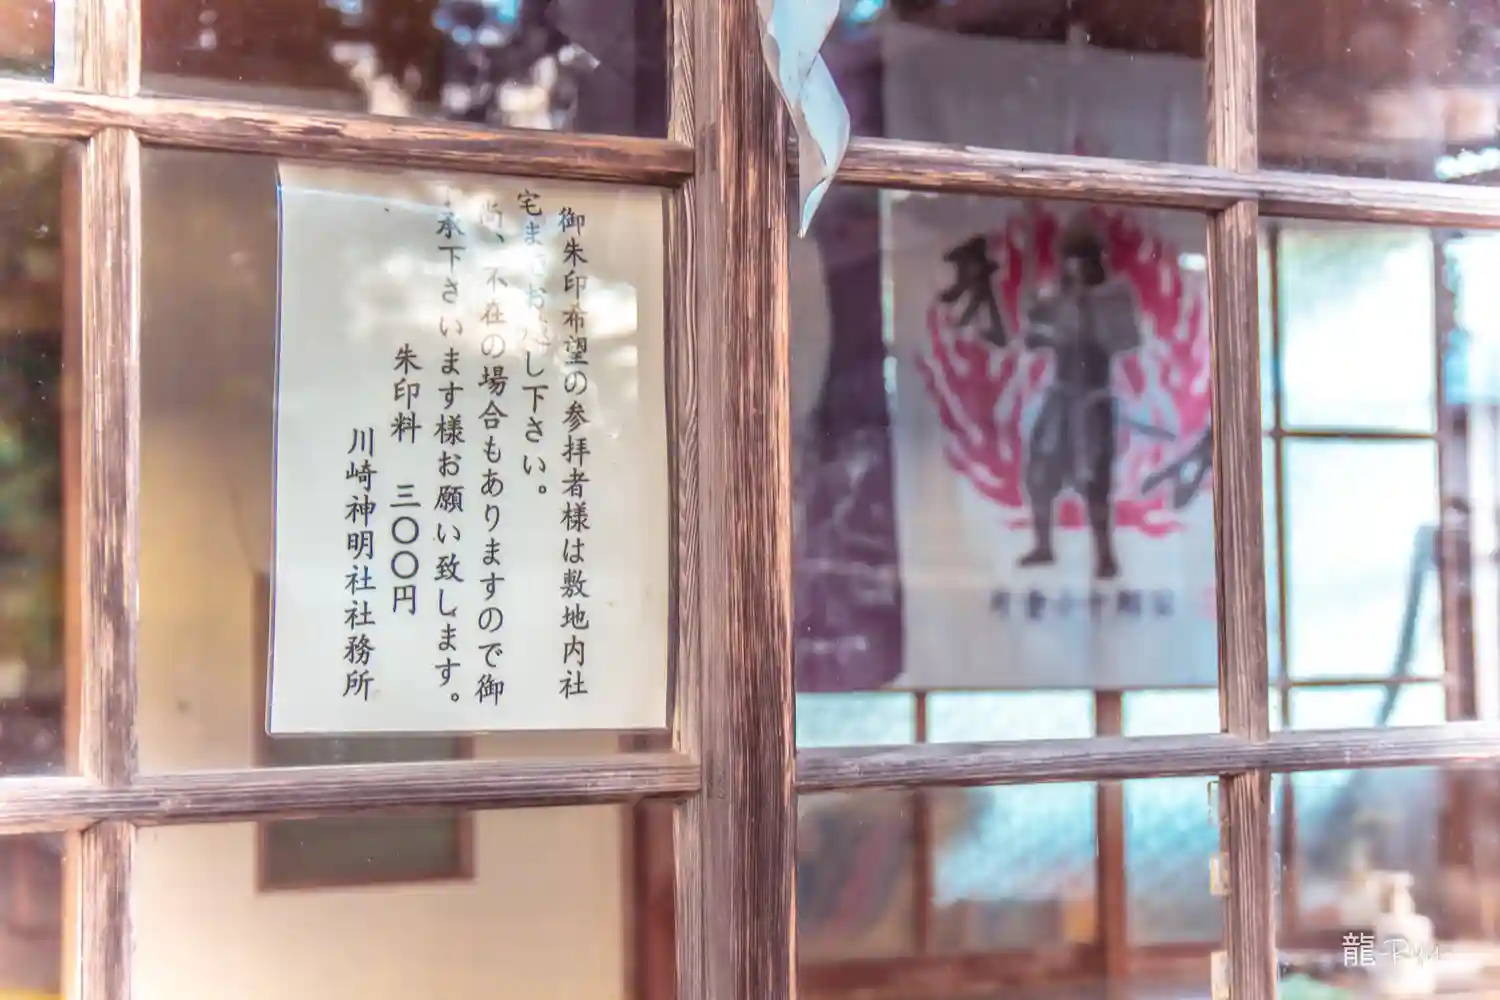 御朱印希望の参拝者様は敷地内社
宅までお越し下さい。
尚、不在の場合もありますので御
了承下さいます様お願い致します。
朱印料　三〇〇円
川崎神明社社務所
片倉小十郎
龍-Ryu-